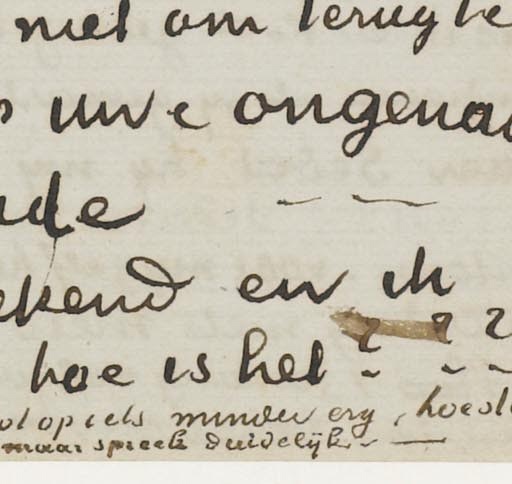 niet om terug te
uwe ongena
de – —
ekend en ik
hoe is het ? ? ?
op iets minder erg, hoest
maar spreek duidelijk. —